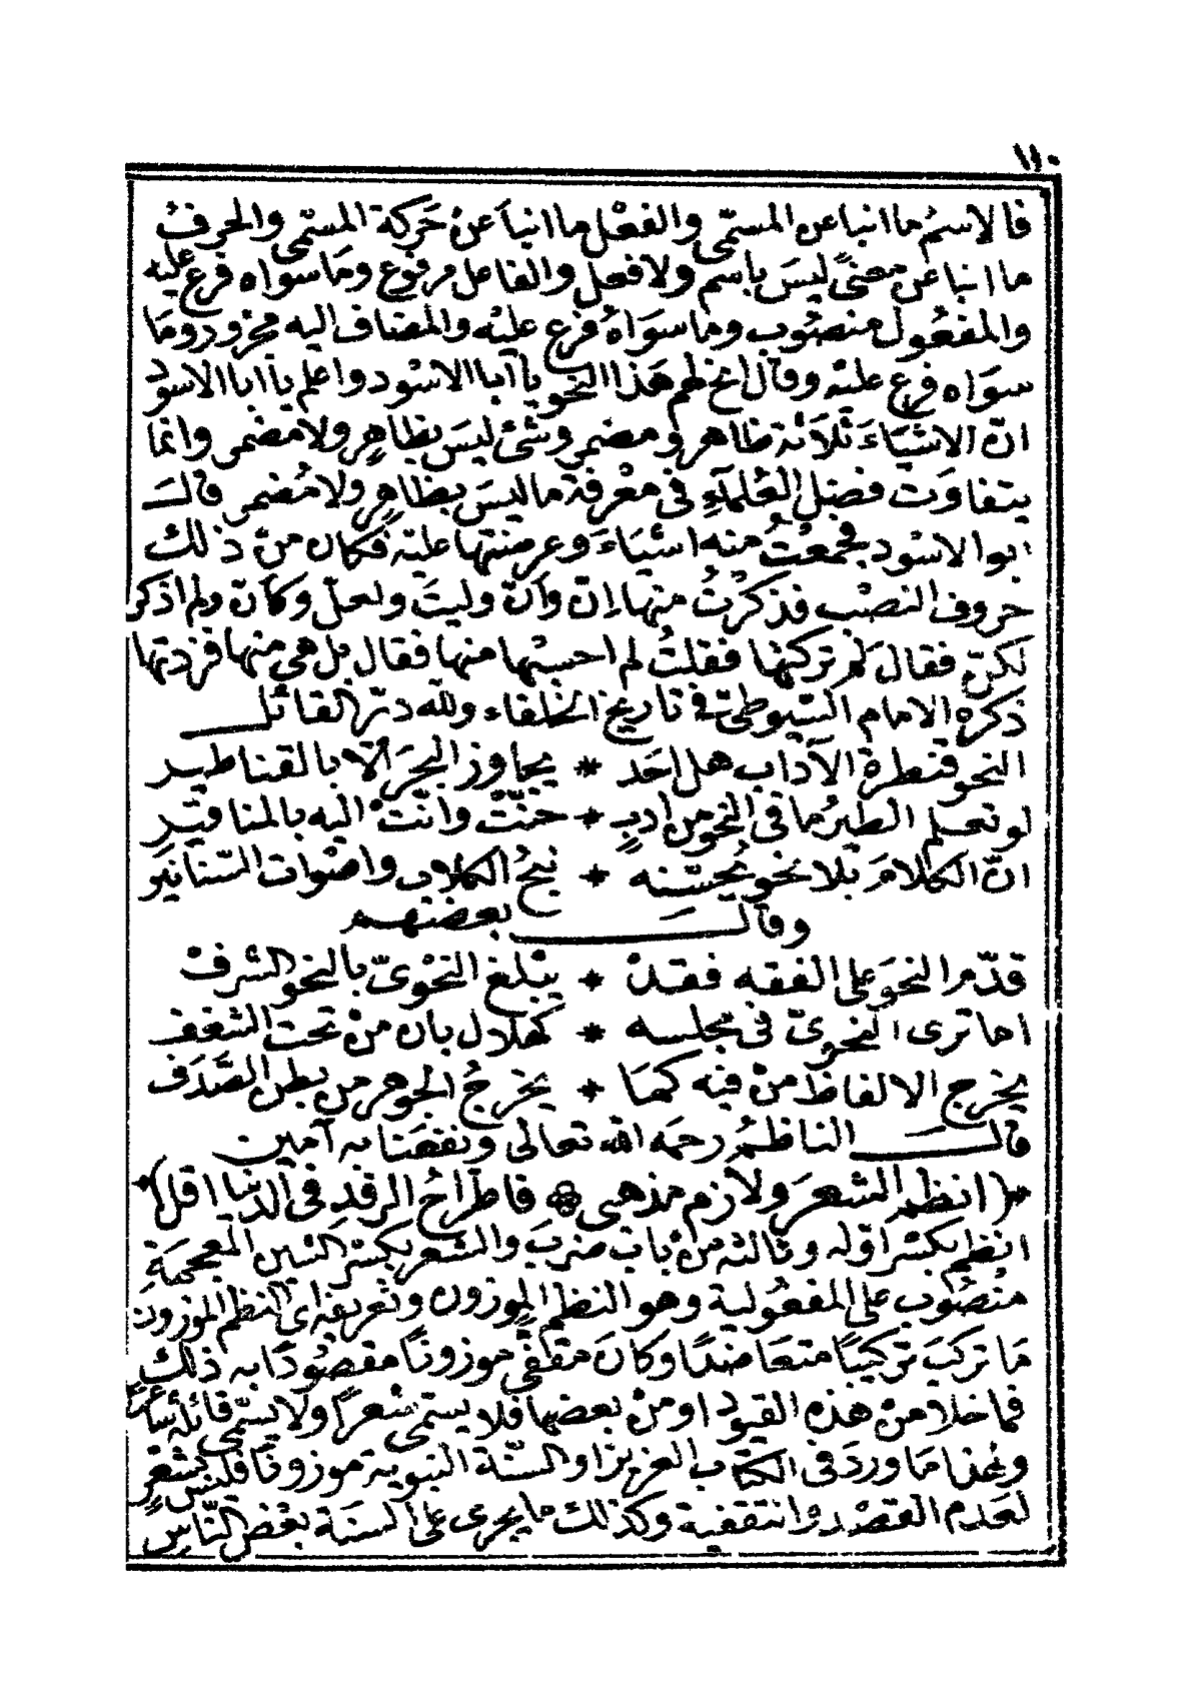 ١١٠
فالاسمُ ما انبا عن المسمّى والفعْل ما انبأ عنْ حَركة المسمّى والحرفُ
ما انبا عن معنىً ليسَ باسم ولا فعل والفاعل مرفوع ومَا سواه فرع عليه
والمفعُول منصُوب وما سوَاهُ فرع عليْه والمضاف اليه مجرور ومَا
سوَاه فرع عليْه وقال انح لهم هَذا النحو يا أبا الاسْود واعلم يا أبا الاسود
انّ الاشيَاءَ ثلاثة ظاهر ومضمر وشئ ليسَ بظاهرٍ ولا مضمر وانما
يتفاوَت فضل العُلماءِ في معْرفة ما ليسَ بظاهرٍ ولا مُضمر قالَ
ابو الاسْود فجمعْتُ منه اشيَاءَ وعرضتها عليْه فكان منْ ذلك
حروف النصْب فذكرْتُ منها إنّ وأنّ وليتَ ولعلّ وكأنّ ولم اذكر
لكنّ فقال لِمَ تركتها فقلتُ لم احسبْها منها فقال بل هي منها فزدتها
ذكره الامام السّيوطيّ في تاريخ الخلفاء ولله درّ القائل
النحو قنطرة الآداب هل احَد * يجاوز البحرَ الّا بالقناطير
لو تعلم الطيْرُ ما في النحو من ادبٍ * حنّتْ وانّتْ اليه بالمناقيْر
انّ الكلامَ بلا نحو يُحسّنه * نبحُ الكلاب واصْوات السّنانيَر
وقالَ بعضهم
قدّم النحوَ على الفقه فقدْ * يبْلغ النحْويّ بالنحو الشرفْ
اما ترى النحويّ في مجلسه * كهلال بان منْ تحت الشغف
يخرج الالفاظ منْ فيْه كمَا * يخرجُ الجوهر من بطن الصَّدَف
قالَ الناظمُ رحمَه الله تعالى ونفعَنا به آمين
(انظم الشعرَ ولازم مذهبي * فاطراحُ الرفدِ في الدنيا اقل)
انظم بكسْر اوّله وثالثه منْ باب ضربَ والشعر بكسْر الشين المعجمَةِ
منصُوب على المفعُولية وهو النظم الموزون وتعريفه اي النظم الموزون
مَا تركبَ تركيبًا متعاضدًا وكانَ مقفّى موزونًا مقصُودًا به ذلك
فما خلا منْ هذه القيُود او منْ بعضها فلا يسمّى شعرًا ولا يسمّى قائله شاعرًا
ولهذا مَا وردَ في الكتاب العزيز او السّنة النبوية موزونًا فليسَ بشعْرٍ
لعَدم القصْد وانتقفية وكذلك ما يجرى على السنة بعْض النّاس